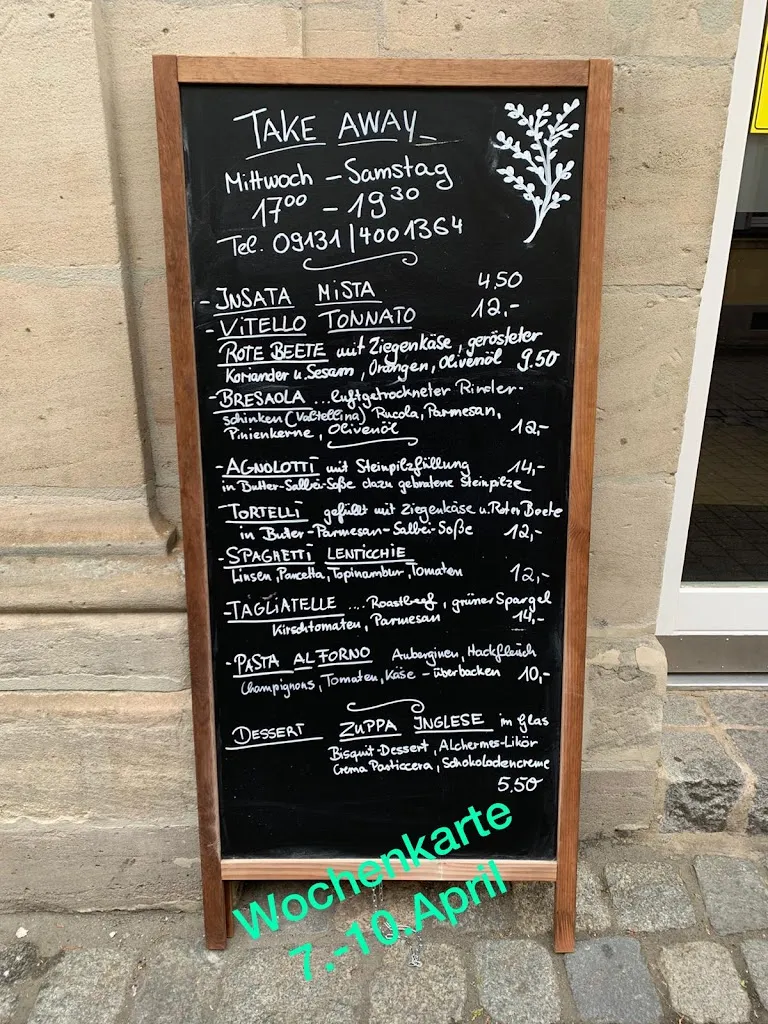 TAKE AWAY_
Mittwoch – Samstag
17⁰⁰ – 19³⁰
Tel. 09131/4001364
- INSATA MISTA 4,50
- VITELLO TONNATO 12,-
ROTE BEETE mit Ziegenkäse, gerösteter
Koriander u. Sesam, Orangen, Olivenöl 9.50
- BRESAOLA ...luftgetrockneter Rinder-
schinken (Valtellina) Rucola, Parmesan,
Pinienkerne, Olivenöl 12,-
- AGNOLOTTI mit Steinpilzfüllung 14,-
in Butter-Salbei-Soße dazu gebratene Steinpilze
TORTELLI gefüllt mit Ziegenkäse u. Roten Beete
in Butter-Parmesan-Salbei-Soße 12,-
- SPAGHETTI LENTICCHIE
Linsen, Pancetta, Topinambur, Tomaten 12,-
- TAGLIATELLE ...Roastbeef, grüner Spargel
Kirschtomaten, Parmesan 14,-
- PASTA AL FORNO Auberginen, Hackfleisch
Champignons, Tomaten, Käse – überbacken 10,-
DESSERT ZUPPA INGLESE im Glas
Bisquit-Dessert, Alchermes-Likör
Crema Pasticcera, Schokoladencreme
5,50
Wochenkarte
7.-10.April